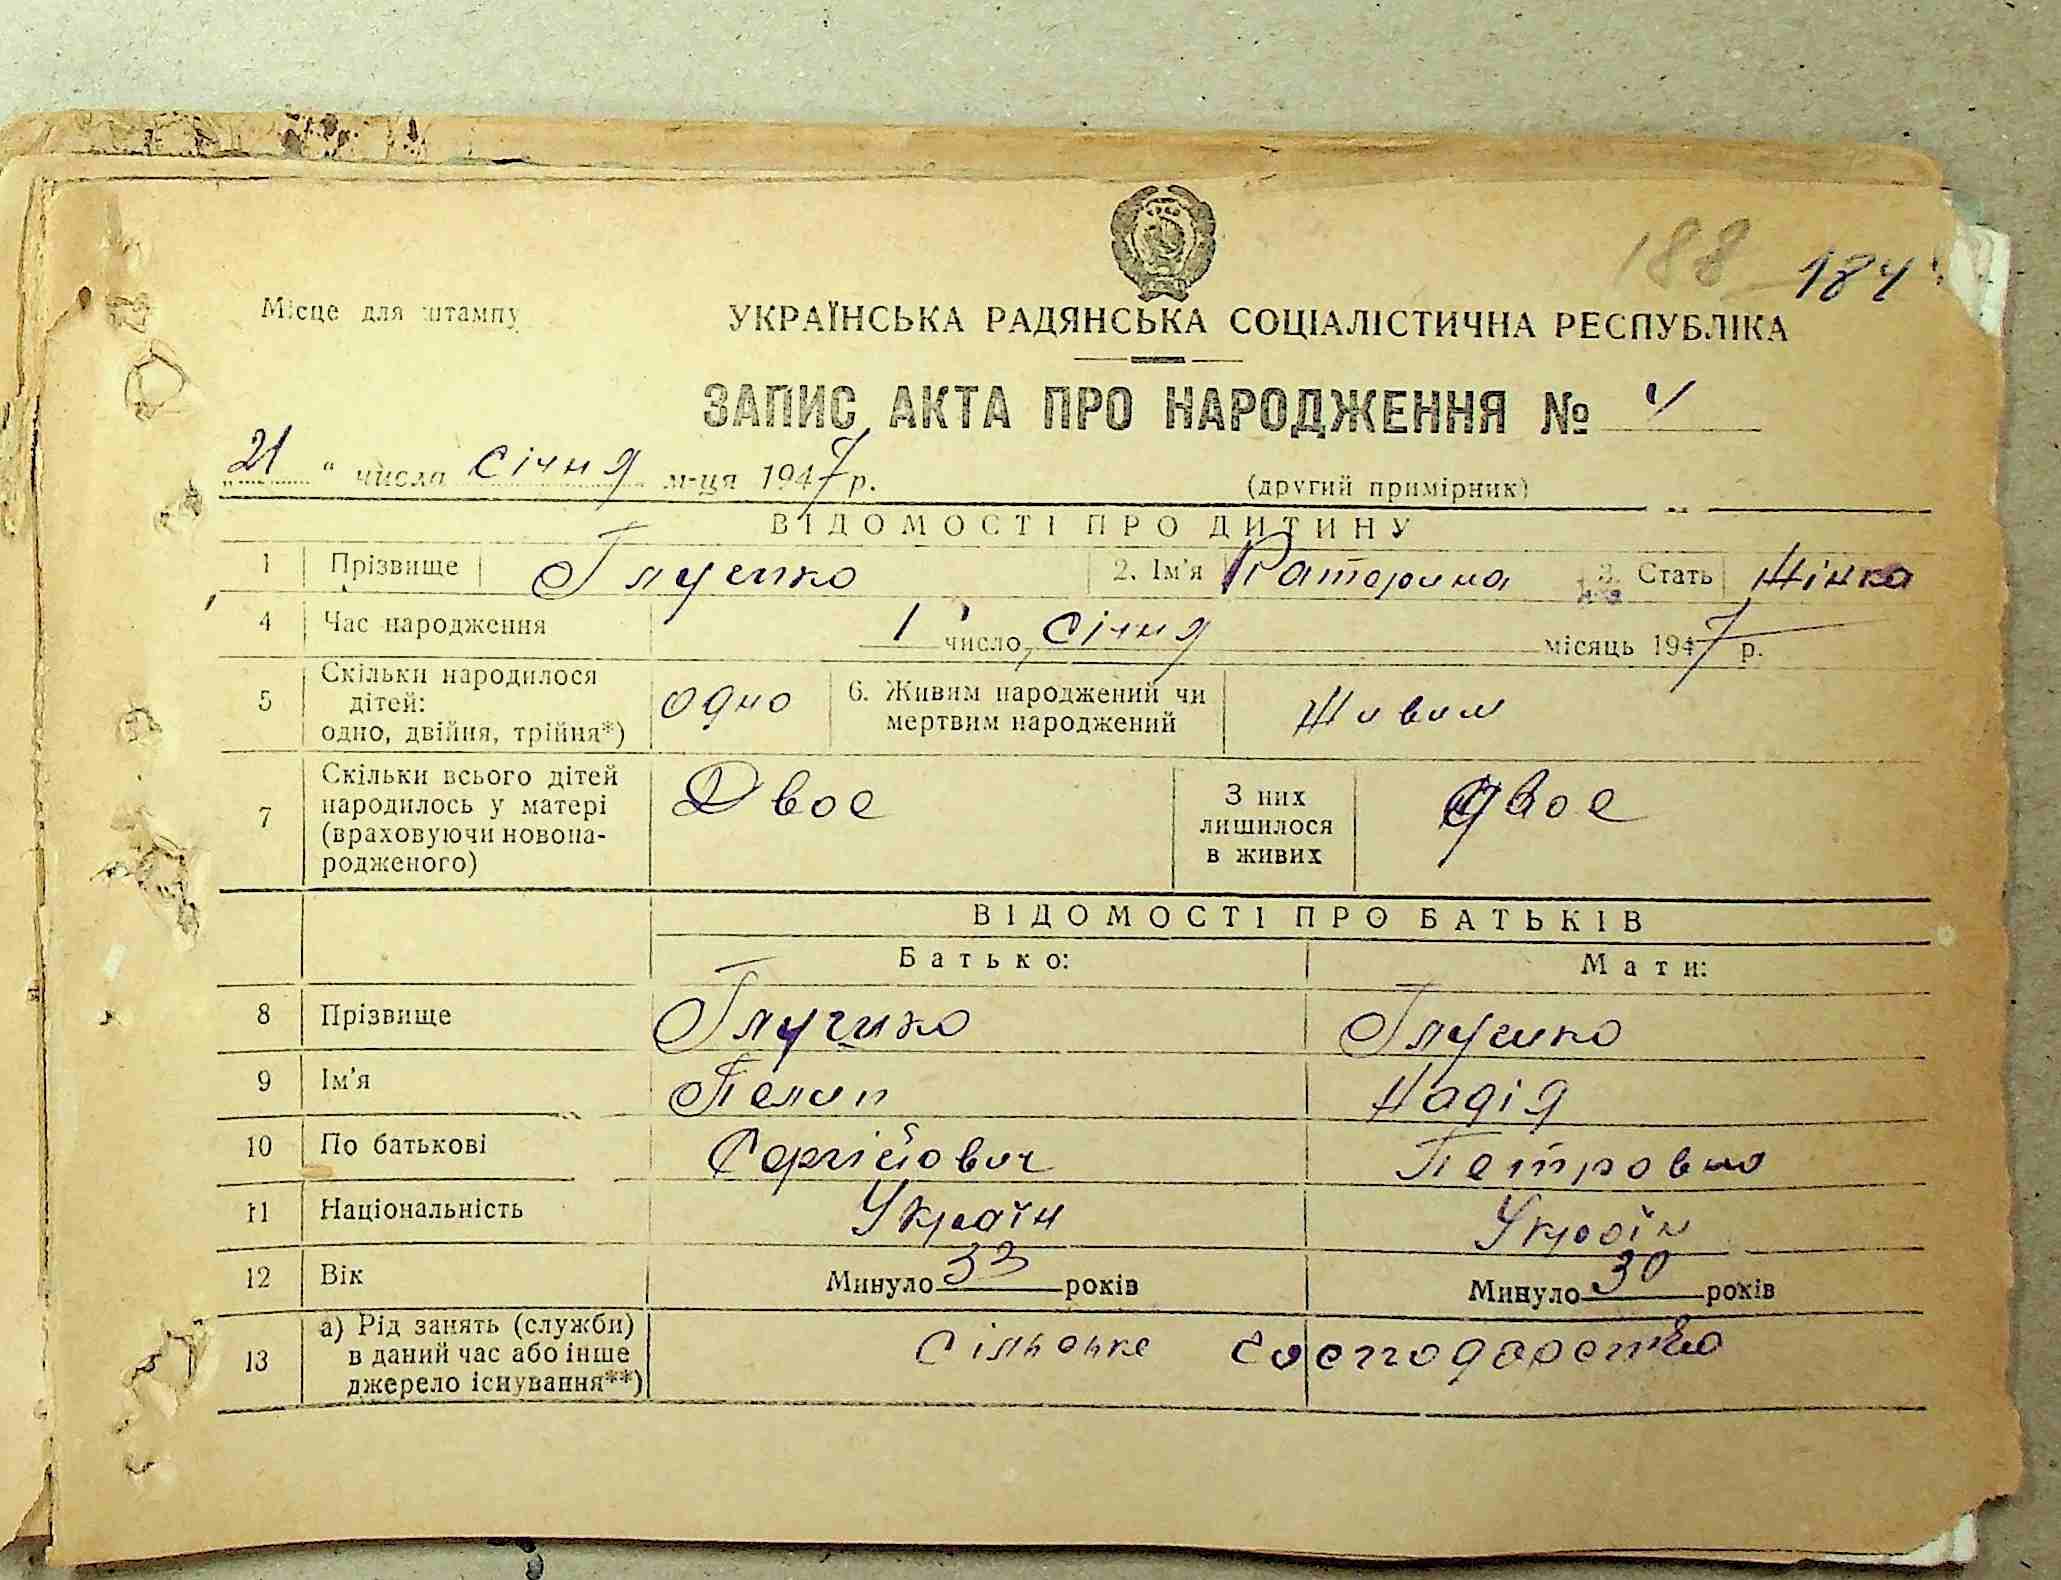 188 184
Місце для штампу
УКРАЇНСЬКА РАДЯНСЬКА СОЦІАЛІСТИЧНА РЕСПУБЛІКА
ЗАПИС АКТА ПРО НАРОДЖЕННЯ № 4
„21“ числа січня м-ця 1947 р.
(другий примірник)
ВІДОМОСТІ ПРО ДИТИНУ
1 Прізвище 2. Ім'я Катерина 3. Стать Жінка
4 Час народження 1 число, Січня місяць 1947 р.
5 Скільки народилося дітей: одно, двійня, трійня*) одно 6. Живим народжений чи мертвим народжений Живим
7 Скільки всього дітей народилось у матері (враховуючи новонародженого) Двое З них лишилося в живих двое
ВІДОМОСТІ ПРО БАТЬКІВ
Батько: Мати:
8 Прізвище
9 Ім'я Пелип Надія
10 По батькові Сергійович Петровна
11 Національність Україн Україн
12 Вік Минуло 33 років Минуло 30 років
13 а) Рід занять (служби) в даний час або інше джерело існування**) господарство